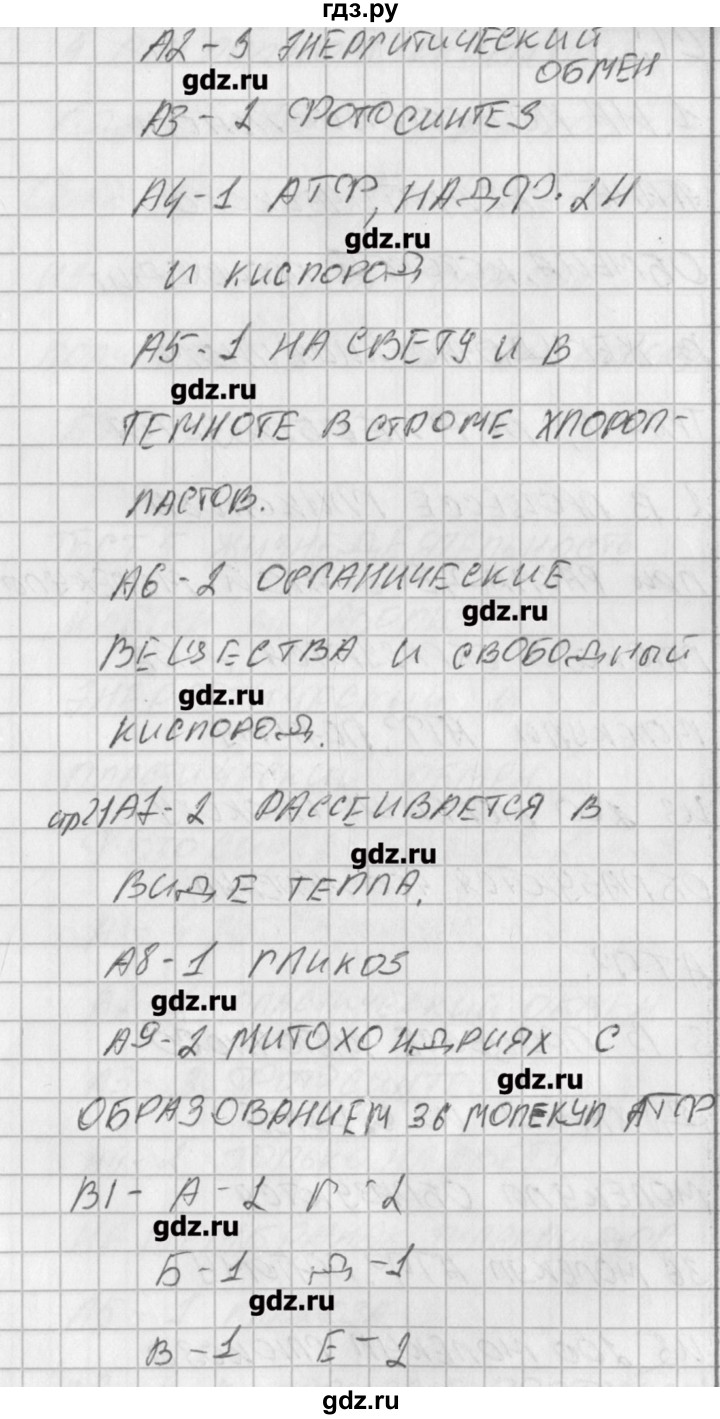 гдз.ру
А2 - 3 ЭНЕРГИТИЧЕСКИЙ
ОБМЕН
gdz.ru
А3 - 2 ФОТОСИНТЕЗ
А4 - 1 АТФ, НАДФ·2Н
gdz.ru
И КИСЛОРОД
А5 - 1 НА СВЕТУ И В
gdz.ru
ТЕМНОТЕ В СТРОМЕ ХЛОРОП-
ЛАСТОВ.
А6 - 2 ОРГАНИЧЕСКИЕ
gdz.ru
ВЕЩЕСТВА И СВОБОДНЫЙ
gdz.ru
КИСЛОРОД.
стр21 А7 - 2 РАССЕИВАЕТСЯ В
gdz.ru
ВИДЕ ТЕПЛА.
А8 - 1 ГЛИКОЗ
gdz.ru
А9 - 2 МИТОХОНДРИЯХ С
gdz.ru
ОБРАЗОВАНИЕМ 36 МОЛЕКУЛ АТФ
В1 - А - 2 Г - 2
gdz.ru
Б - 1 Д - 1
gdz.ru
В - 1 Е - 2
gdz.ru